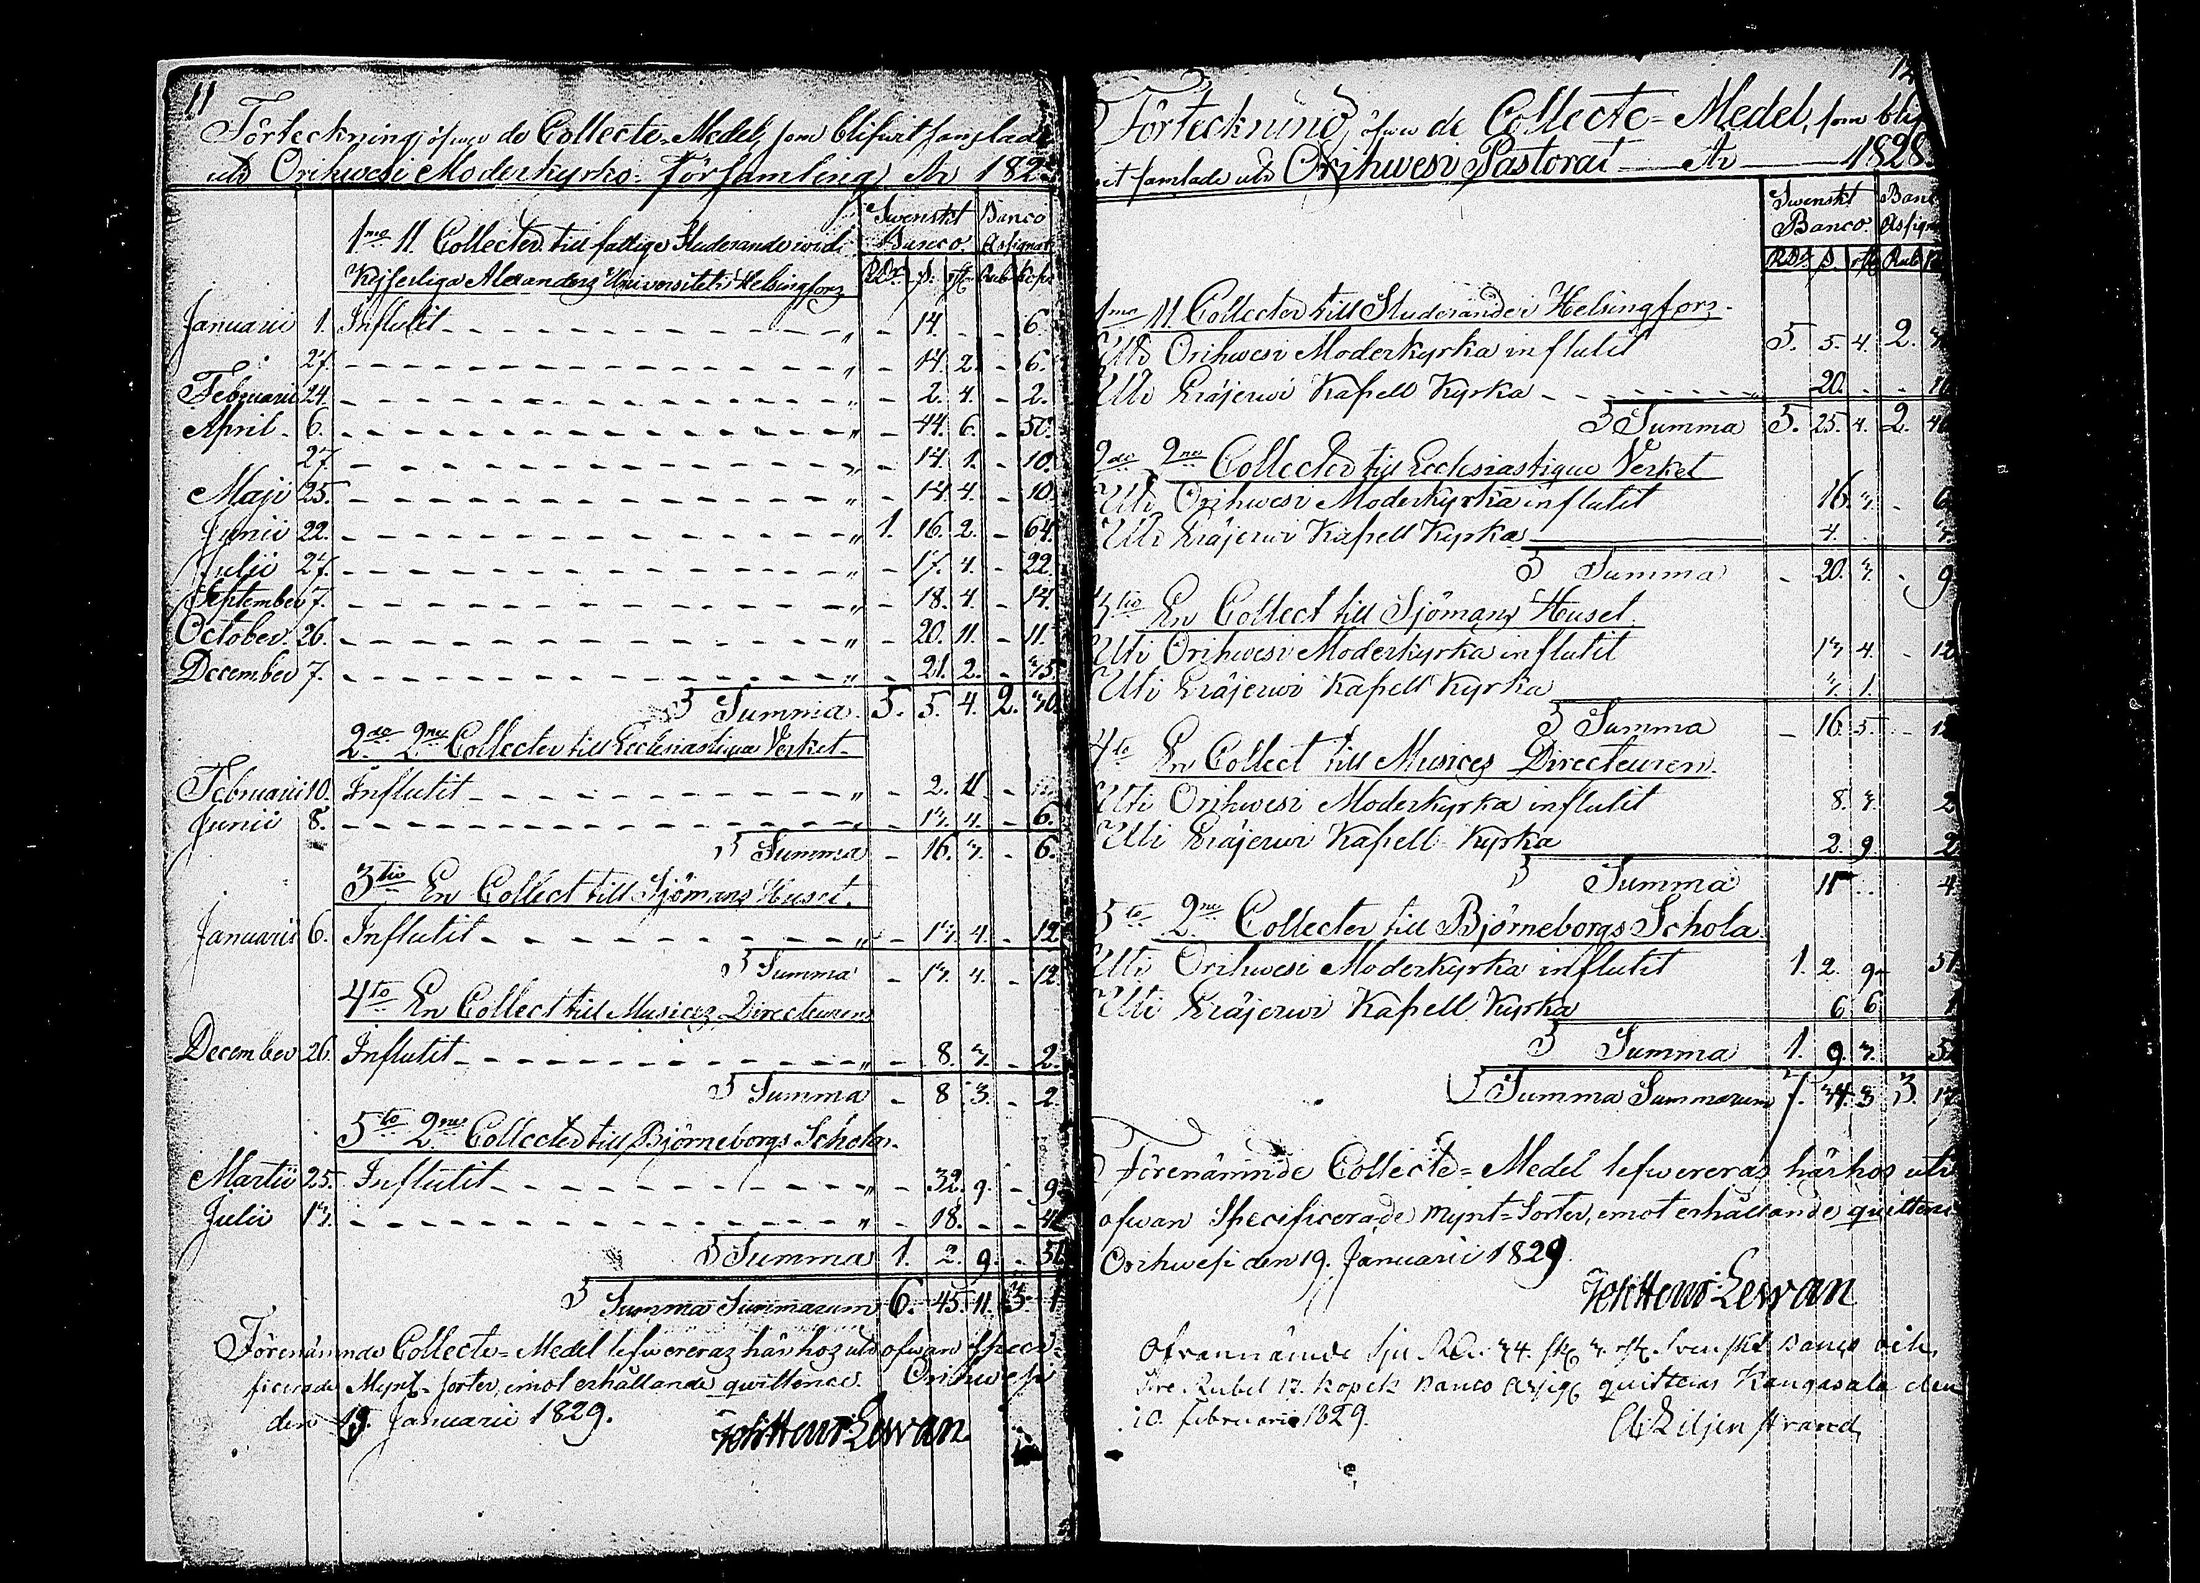 11
Förteckning öfwer de Collecte-Medel, som blifwit samlade
uti Orihwesi Moderkyrko-Församling År 182
Swenskt Banco
1mo 11 Collecter till fattige Studerande wid
Banco Assignat
Kejserliga Alexanders Universitetet i Helsingfors
RDr. ß. rst. Rub. Kope
Januarii 1. Influtit „ - 14. - - 6.
27. „ - 14. 2. - 6.
Februarii 24. „ - 2. 4. - 2.
April. 6. „ - 44. 6. - 50.
27. „ - 14. 1. - 10.
Maji 25. „ - 14. 4. - 10.
Junii 22. „ 1. 16. 2. - 64.
Julii 27. „ - 17. 4. - 22.
September 7. „ - 18. 4. - 14.
October. 26. „ - 20. 11. - 11.
December 7. „ - 21. 2. - 35.
Summa. 5. 5. 4. 2. 30.
2do 2ne Collecter till Ecclesiastique Verket
Februarii 10. Influtit „ - 2. 11 -
Junii 8. „ - 13. 4. - 6.
Summa - 16. 3. - 6.
3tio En Collect till Sjömans Huset.
Januarii 6. Influtit „ - 13. 4. - 12.
Summa - 13. 4. - 12.
4to En Collect till Musices Directeuren
December 26. Influtit „ - 8. 3. - 2.
Summa - 8 3. - 2.
5to 2ne Collecter till Björneborgs Schola.
Martii 25. Influtit „ - 32. 9. - 9.
Julii 13. „ - 18. - - 42
Summa 1. 2. 9. - 51
Summa Summarum 6. 45. 11. 3. 1
Förenämnde Collecte-Medel lefwereras här hos uti ofwan speci-
ficerade Mynt-sorter, emot erhållande qwittence. Orihwesi
den 19. Januarii 1829.
Joh Henr Lewan
12
Förteckning, öfwer de Collecte-Medel, som blif
wit samlade uti Orihwesi Pastorat År 1828.
Swenskt Banco. Banc Assign
RDr ß. rst Rub
1mo 11. Collecter till Studerande i Helsingfors.
Uti Orihwesi Moderkyrka influtit 5. 5. 4. 2. 3
Uti Eräjerwi Kapell Kyrka „ 20. - - 1
Summa 5. 25. 4. 2. 4
2do 2ne Collecter till Ecclesiastique Verket
Uti Orihwesi Moderkyrka influtit 16. 3. - 6
Uti Eräjerwi Kapell Kyrka 4. 3.
Summa - 20. 3. - 9
3tio En Collect till Sjömans Huset.
Uti Orihwesi Moderkyrka influtit 13 4. - 12
Uti Eräjerwi Kapell Kyrka 3. 1.
Summa - 16. 5. - 12
4to En Collect till Musices Directeuren.
Uti Orihwesi Moderkyrka influtit 8. 3. 2
Uti Eräjerwi Kapell Kyrka 2. 9 2
Summa 11 - 4
5to 2ne Collecter till Björneborgs Schola
Uti Orihwesi Moderkyrka influtit 1. 2. 9 51
Uti Eräjerwi Kapell Kyrka 6 6. 1
Summa 1. 9. 3. 5
Summa Summarum 7. 34. 3 3. 17
Förenämnde Collecte-Medel lefwereras här hos uti
ofwan Specificerade Mynt-Sorter, emot erhållande quittence
Orihwesi den 19. Januarii 1829
Joh Henr Lewan
Ofvannämde sju RD. 34. sk 3. rst. Svenskt Banco och
tre Rubel 17. kopek Banco Assig quitteras Kangasala den
10. Februarii 1829.
Liljenstrand